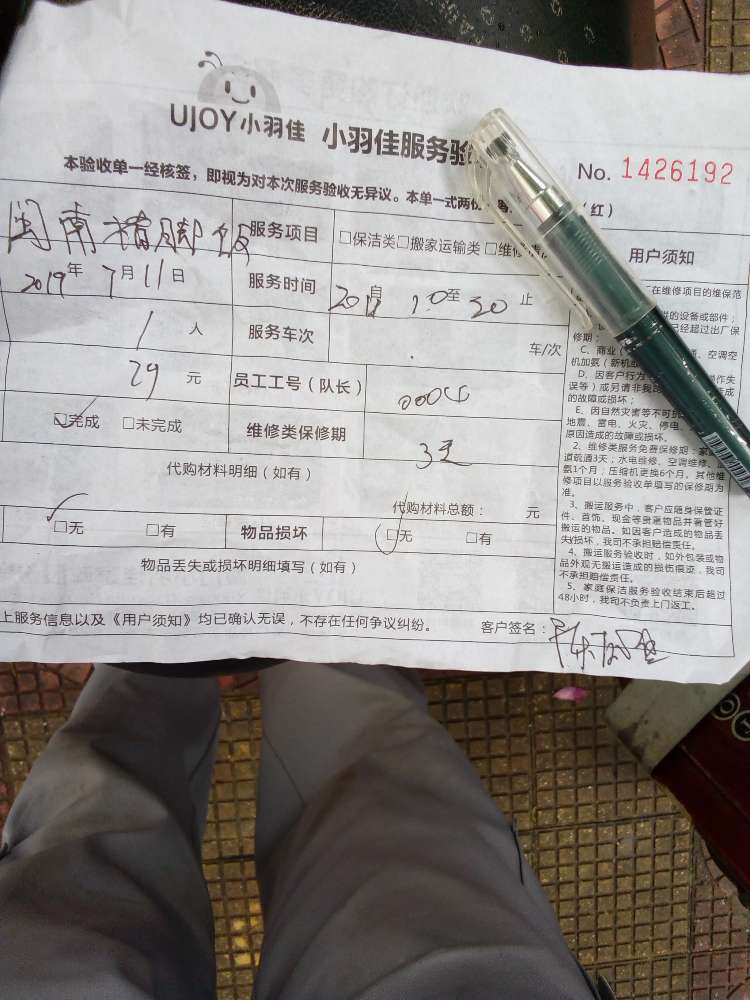 UJOY小羽佳 小羽佳服务验
No. 1426192
本验收单一经核签，即视为对本次服务验收无异议。本单一式两份
（红）
闽南猪脚饭 服务项目 □保洁类□搬家运输类□维修
用户须知
2019年7月11日 服务时间 自 至 止
1人 服务车次 车/次
29元 员工工号（队长）
☑完成 □未完成 维修类保修期 3天
代购材料明细（如有）
代购材料总额： 元
☑无 □有 物品损坏 ☑无 □有
物品丢失或损坏明细填写（如有）
上服务信息以及《用户须知》均已确认无误，不存在任何争议纠纷。 客户签名：
在维修项目的维保范
的设备或部件；
已经超过出厂保
修期；
C、商业 空调空
机加氨（新机
D、因客户行为 操作失
误等）或另请非我 造成
的故障或损坏；
E、因自然灾害等不可抗
地震、雷电、火灾、停电
原因造成的故障或损坏。
2、维修类服务免费保修期：
道疏通3天；水电维修、空调维修、
氨1个月；压缩机更换6个月。其他维
修项目以服务验收单填写的保修期为
准。
3、搬运服务中，客户应随身保管证
件、首饰、现金等贵重物品并看管好
搬运的物品。如因客户造成的物品丢
失/损坏，我司不承担赔偿责任。
4、搬运服务验收时，如外包装或物
品外观无搬运造成的损伤痕迹，我司
不承担赔偿责任。
5、家庭保洁服务验收结束后超过
48小时，我司不负责上门返工。